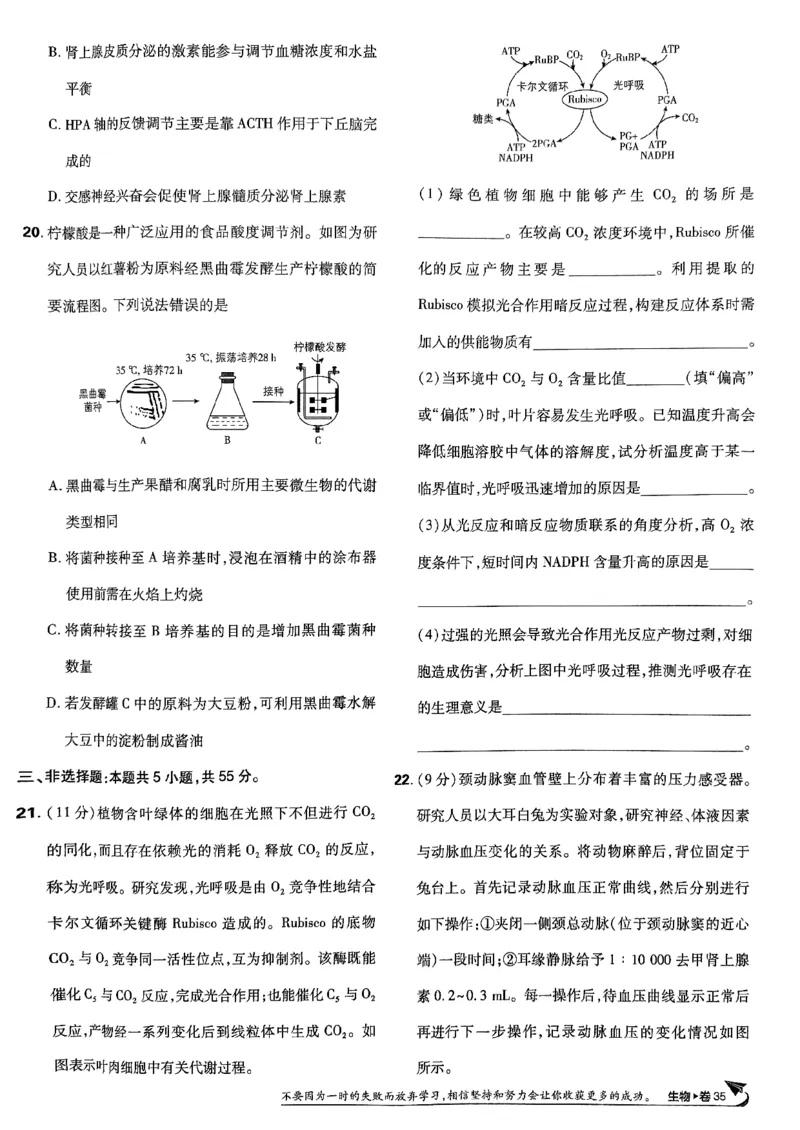 B. 肾上腺皮质分泌的激素能参与调节血糖浓度和水盐
平衡
C. HPA 轴的反馈调节主要是靠 ACTH 作用于下丘脑完
成的
D. 交感神经兴奋会促使肾上腺髓质分泌肾上腺素
20. 柠檬酸是一种广泛应用的食品酸度调节剂。如图为研
究人员以红薯粉为原料经黑曲霉发酵生产柠檬酸的简
要流程图。下列说法错误的是
柠檬酸发酵
35 ℃, 振荡培养28 h
35 ℃, 培养72 h
黑曲霉
菌种
接种
A B C
A. 黑曲霉与生产果醋和腐乳时所用主要微生物的代谢
类型相同
B. 将菌种接种至 A 培养基时,浸泡在酒精中的涂布器
使用前需在火焰上灼烧
C. 将菌种转接至 B 培养基的目的是增加黑曲霉菌种
数量
D. 若发酵罐 C 中的原料为大豆粉,可利用黑曲霉水解
大豆中的淀粉制成酱油
三、非选择题:本题共 5 小题,共 55 分。
21. (11 分)植物含叶绿体的细胞在光照下不但进行 CO₂
的同化,而且存在依赖光的消耗 O₂ 释放 CO₂ 的反应,
称为光呼吸。研究发现,光呼吸是由 O₂ 竞争性地结合
卡尔文循环关键酶 Rubisco 造成的。Rubisco 的底物
CO₂ 与 O₂ 竞争同一活性位点,互为抑制剂。该酶既能
催化 C₅ 与 CO₂ 反应,完成光合作用;也能催化 C₅ 与 O₂
反应,产物经一系列变化后到线粒体中生成 CO₂。如
图表示叶肉细胞中有关代谢过程。
ATP RuBP CO₂ O₂ RuBP ATP
卡尔文循环 光呼吸
PGA Rubisco PGA
糖类 CO₂
ATP 2PGA PG+ PGA ATP
NADPH NADPH
(1) 绿色植物细胞中能够产生 CO₂ 的场所是
____________。在较高 CO₂ 浓度环境中,Rubisco 所催
化的反应产物主要是____________。利用提取的
Rubisco 模拟光合作用暗反应过程,构建反应体系时需
加入的供能物质有______________________________。
(2)当环境中 CO₂ 与 O₂ 含量比值________(填“偏高”
或“偏低”)时,叶片容易发生光呼吸。已知温度升高会
降低细胞溶胶中气体的溶解度,试分析温度高于某一
临界值时,光呼吸迅速增加的原因是______________。
(3)从光反应和暗反应物质联系的角度分析,高 O₂ 浓
度条件下,短时间内 NADPH 含量升高的原因是______
______________________________________________。
(4)过强的光照会导致光合作用光反应产物过剩,对细
胞造成伤害,分析上图中光呼吸过程,推测光呼吸存在
的生理意义是__________________________________
______________________________________________。
22. (9 分)颈动脉窦血管壁上分布着丰富的压力感受器。
研究人员以大耳白兔为实验对象,研究神经、体液因素
与动脉血压变化的关系。将动物麻醉后,背位固定于
兔台上。首先记录动脉血压正常曲线,然后分别进行
如下操作:①夹闭一侧颈总动脉(位于颈动脉窦的近心
端)一段时间;②耳缘静脉给予 1∶10 000 去甲肾上腺
素 0.2~0.3 mL。每一操作后,待血压曲线显示正常后
再进行下一步操作,记录动脉血压的变化情况如图
所示。
不要因为一时的失败而放弃学习,相信坚持和努力会让你收获更多的成功。 生物▶卷 35